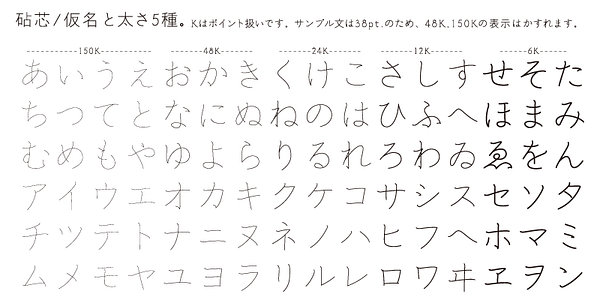 砧芯/仮名と太さ5種。Kはポイント扱いです。サンプル文は38pt.のため、48K,150Kの表示はかすれます。
------------150K------------ -------48K------- -------24K------- -------12K------- -------6K-------
あいうえおかきくけこさしすせそた
ちつてとなにぬねのはひふへほまみ
むめもやゆよらりるれろわゐゑをん
アイウエオカキクケコサシスセソタ
チツテトナニヌネノハヒフヘホマミ
ムメモヤユヨラリルレロワヰヱヲン